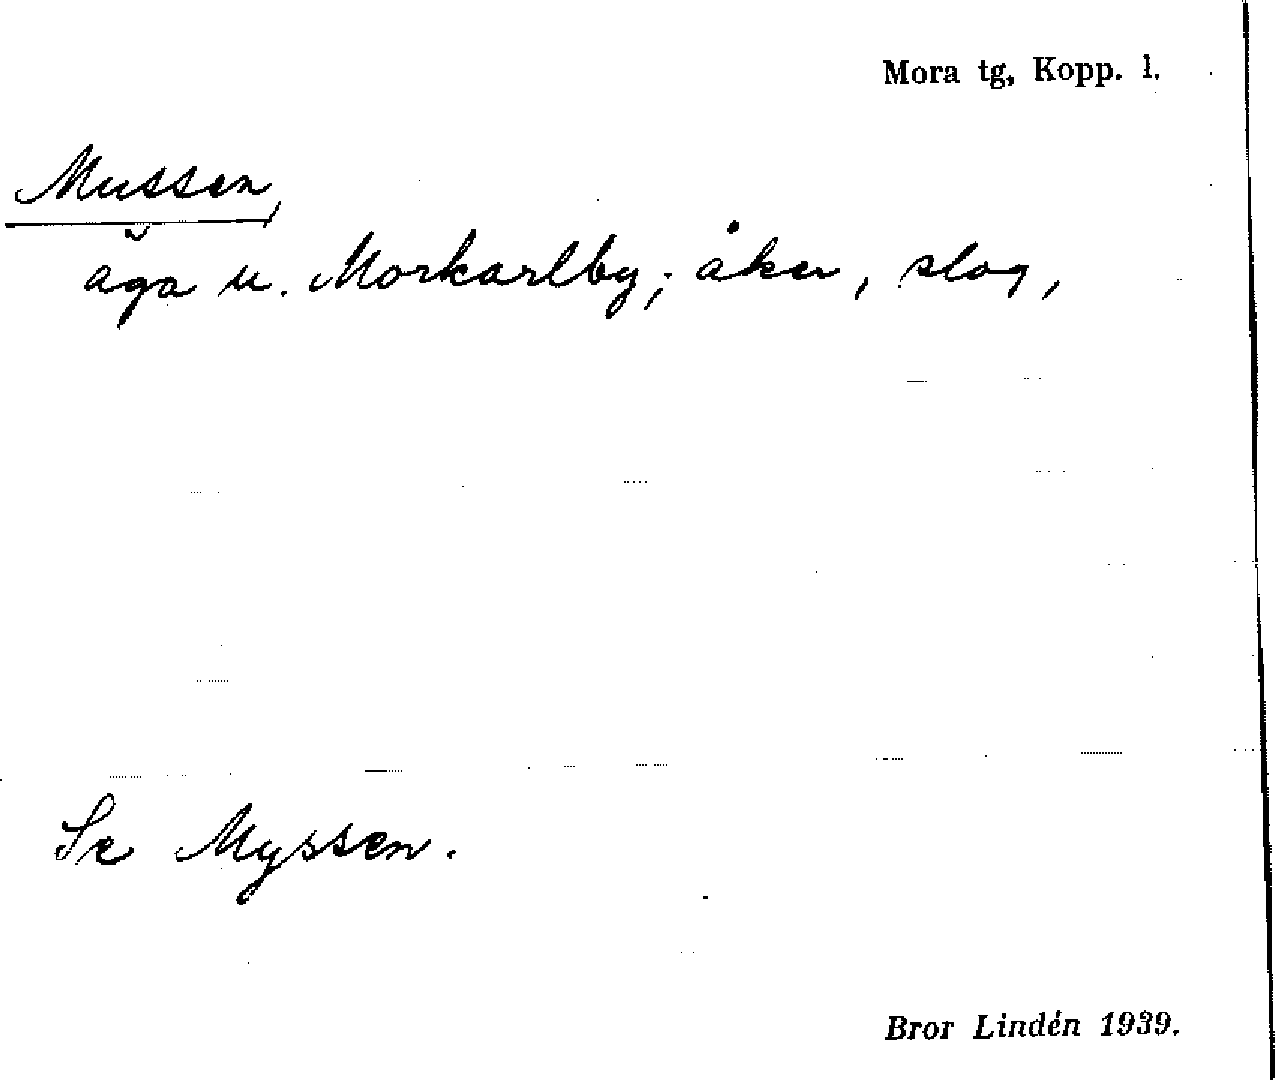 Mora tg, Kopp. l.
Mussen,
äga u. Morkarlby; åker, slog,
Se Myssen.
Bror Lindén 1939.